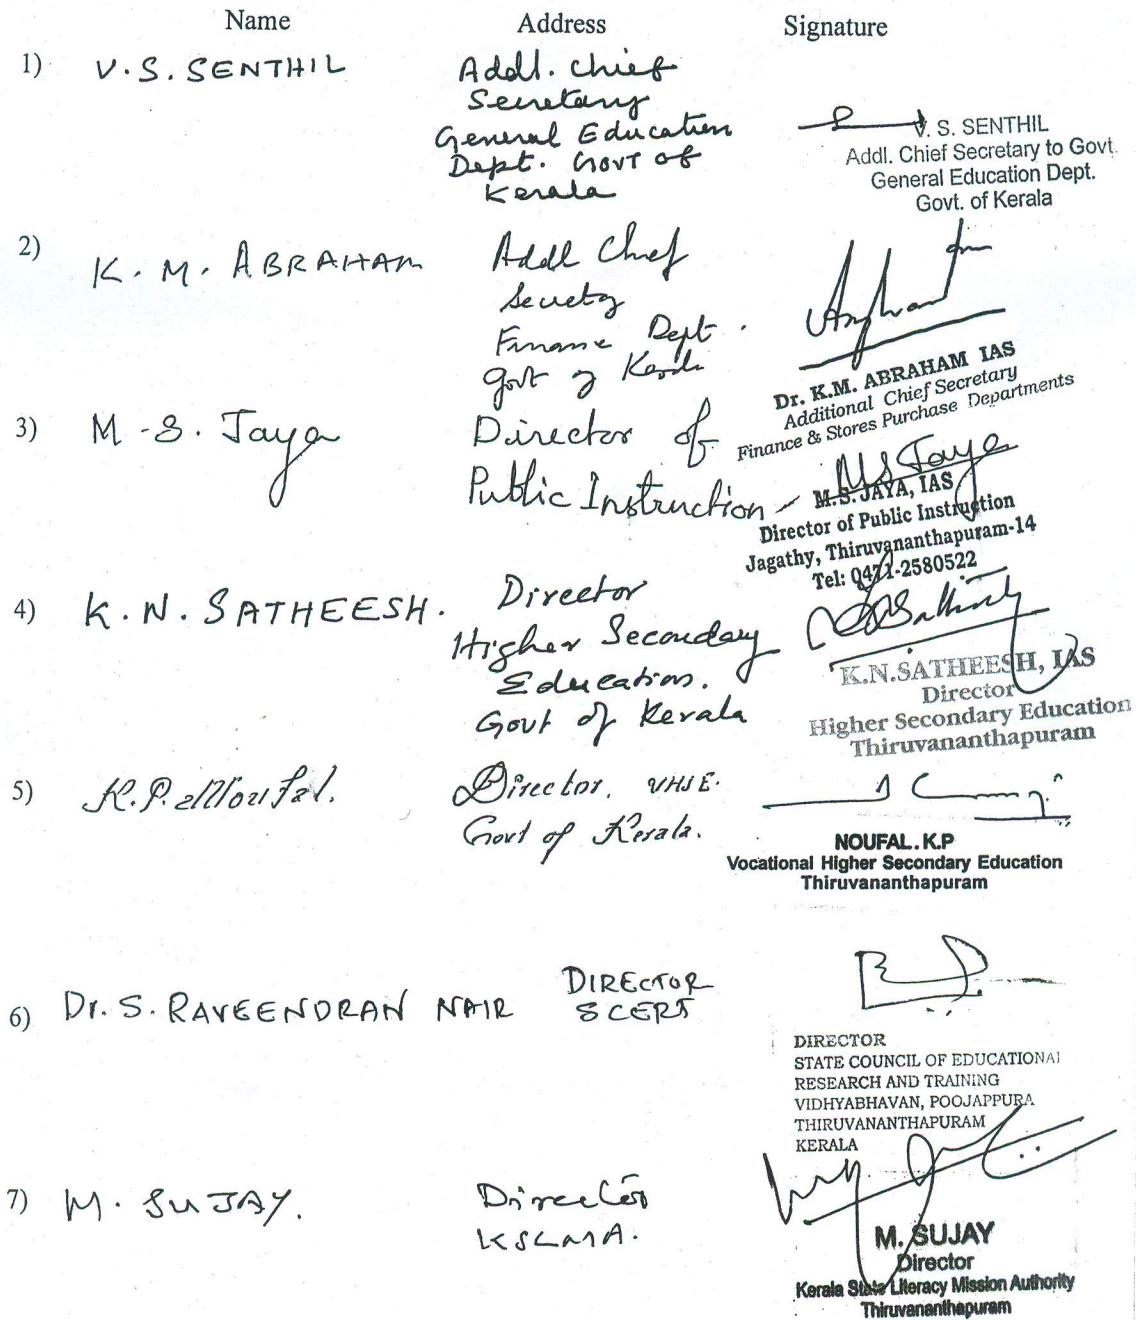 Name Address Signature
1) V.S. SENTHIL
Addl. Chief
Secretary
General Education
Dept. Govt of
Kerala
V. S. SENTHIL
Addl. Chief Secretary to Govt.
General Education Dept.
Govt. of Kerala
2) K. M. ABRAHAM
Addl Chief
Secretary
Finance Dept.
Govt of Kerala
Dr. K.M. ABRAHAM IAS
Additional Chief Secretary
Finance & Stores Purchase Departments
3) M.S. Jaya
Director of
Public Instruction
MS Jaya
M.S. JAYA, IAS
Director of Public Instruction
Jagathy, Thiruvananthapuram-14
Tel: 0471-2580522
4) K.N. SATHEESH.
Director
Higher Secondary
Education.
Govt of Kerala
K.N.SATHEESH, IAS
Director
Higher Secondary Education
Thiruvananthapuram
5) K.P. Noufal.
Director, VHSE.
Govt of Kerala.
NOUFAL.K.P
Vocational Higher Secondary Education
Thiruvananthapuram
6) Dr. S. RAVEENDRAN NAIR
DIRECTOR
SCERT
DIRECTOR
STATE COUNCIL OF EDUCATIONAL
RESEARCH AND TRAINING
VIDHYABHAVAN, POOJAPPURA
THIRUVANANTHAPURAM
KERALA
7) M. SUJAY.
Director
KSLMA.
M. SUJAY
Director
Kerala State Literacy Mission Authority
Thiruvananthapuram